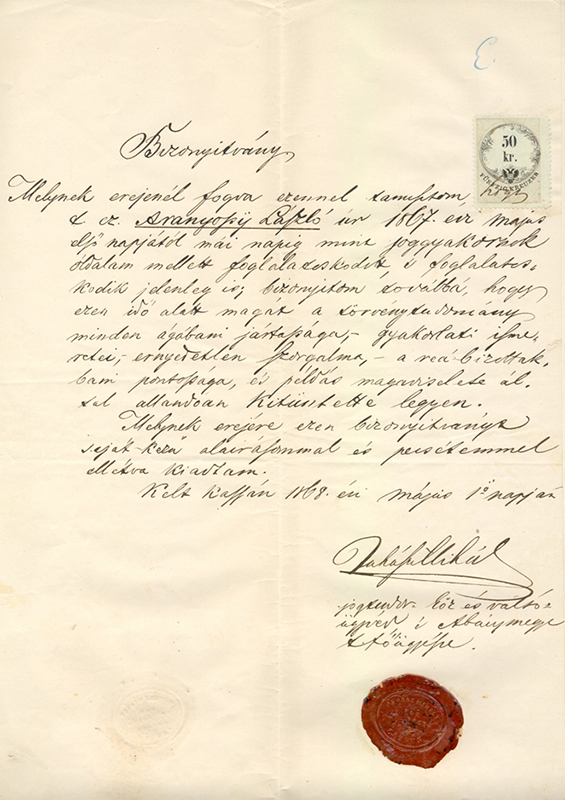 E.
50
kr.
FÜNFZIG KREUZER
Bizonyitvány
Melynek erejénél fogva ezennel tanusitom
Aranyossy László úr 1867. évi május
első napjától mái napig mint joggyakornok
oldalam mellett foglalatoskodott, s foglalatos-
kodik jelenleg is; bizonyitom továbbá, hogy
ezen idő alatt magát a törvénytudomány
minden ágábani jártassága,- gyakorlati isme-
retei,- ernyedetlen szorgalma,- a reá-bizottak-
bani pontossága, és példás magaviselete ál-
tal állandóan kitüntette légyen.
Melynek erejére ezen bizonyitványt
saját-kezű aláirásommal és pecsétemmel
ellátva kiadtam.
Kelt Kassán 1868. évi május 1ő napján
Mihál
jogtudor köz és váltó-
ügyvéd s Abaújmegye
t. főügyésze.